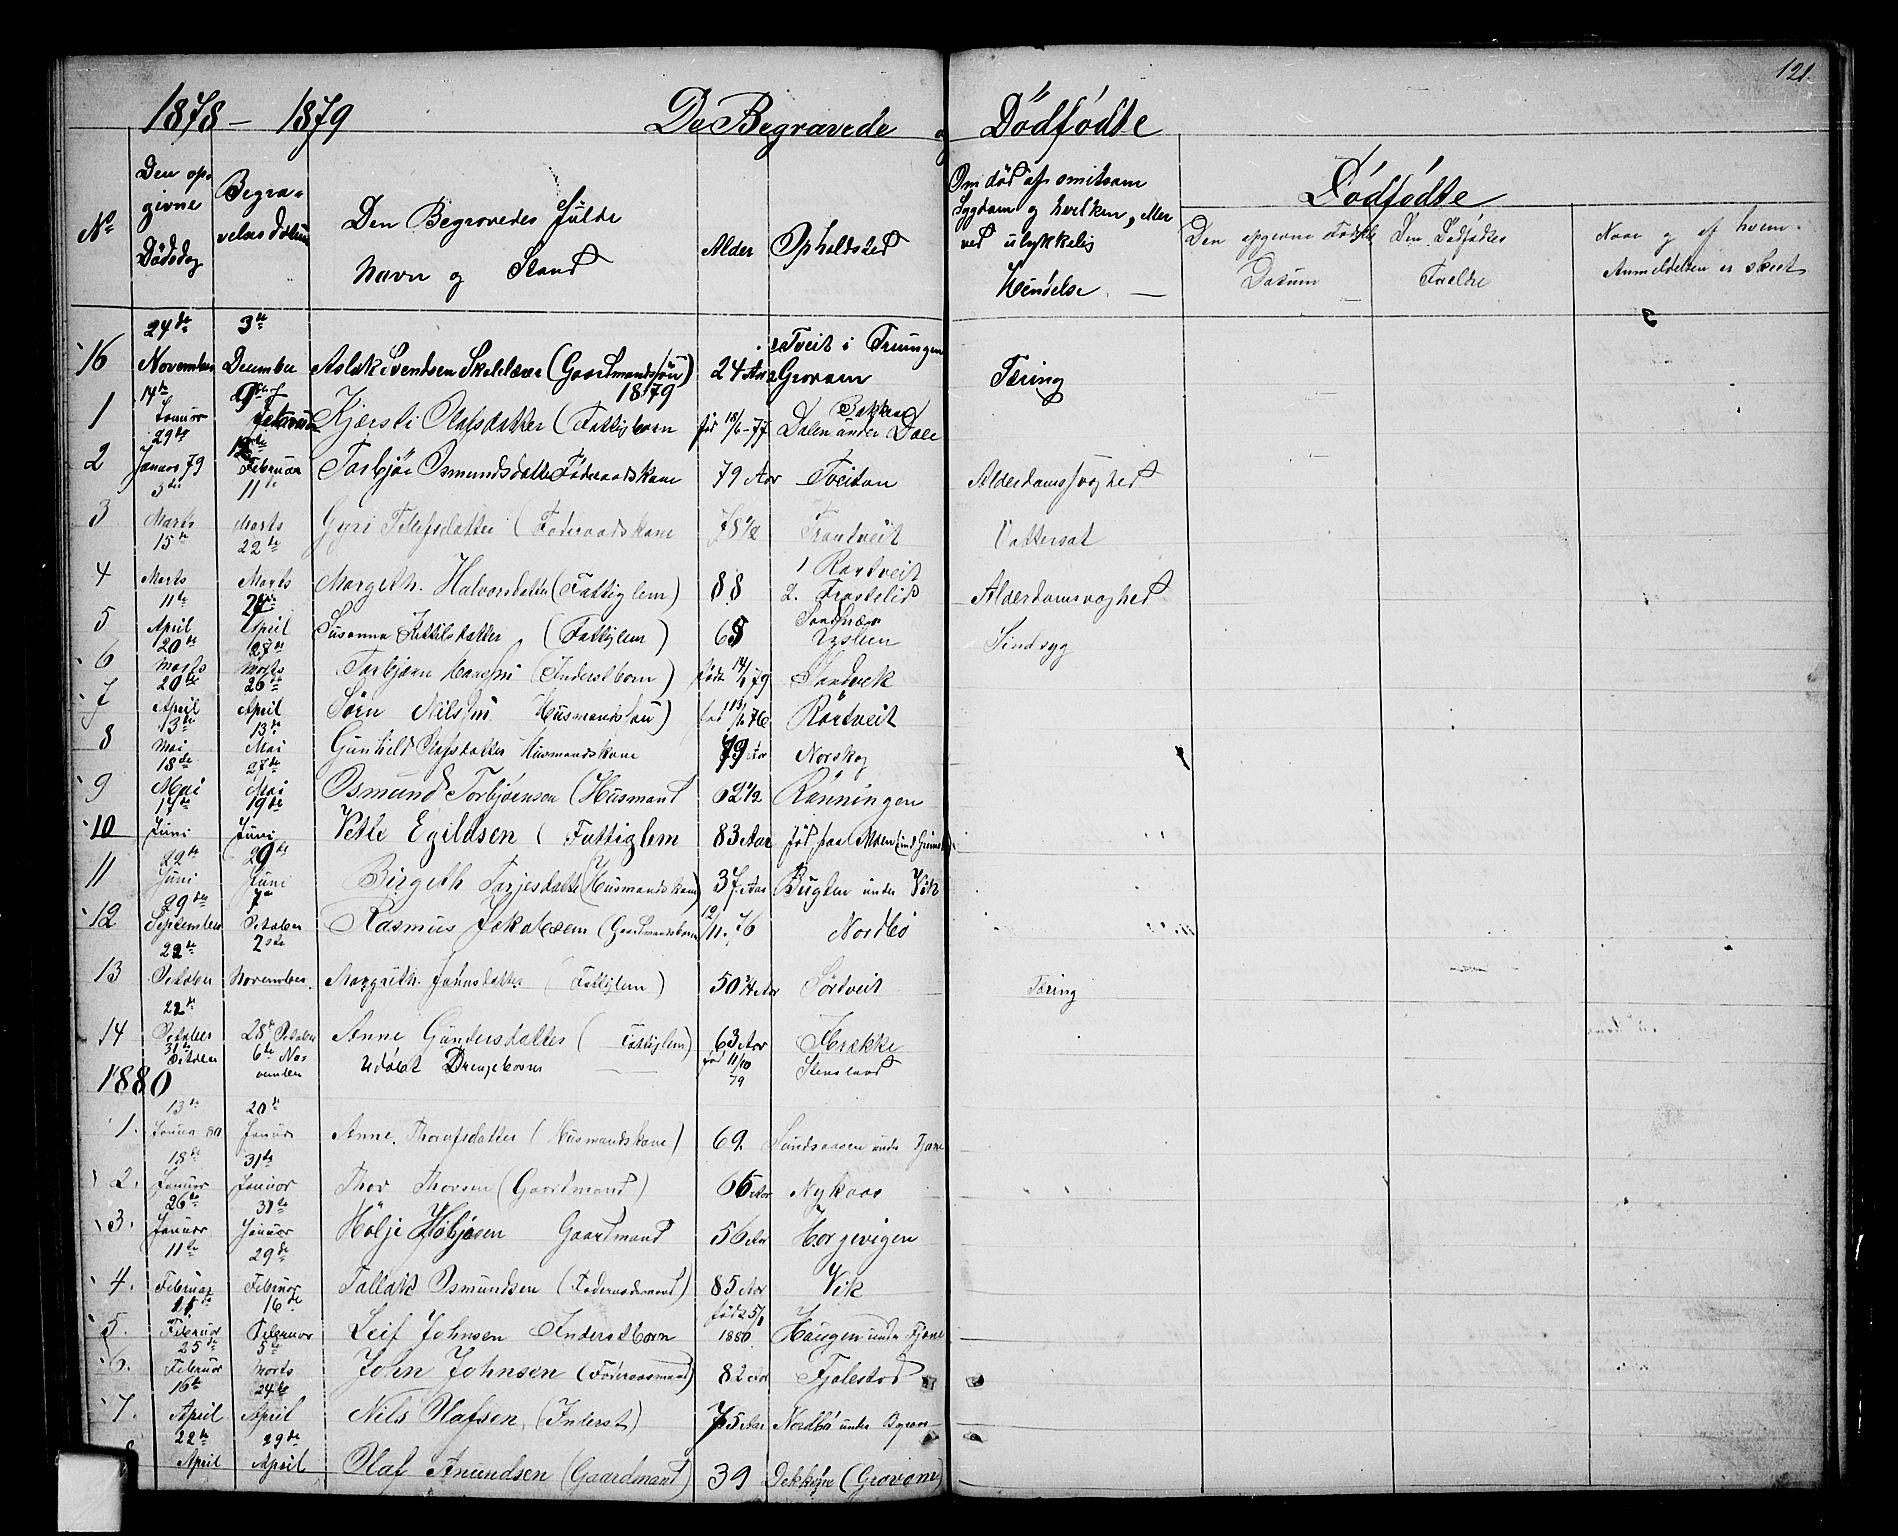 121.
1878 — 1879 De Begravede og Dödfödte
No Den opgivne Dödsdag Begravelses Datum Den Begravedes fulde Navn og Stand Alder Opholdsted Om död af smitsom Sygdom og hvilken, eller ved ulykkelig Hendelse. Dödfödte
Den opgivne Födsels Datum Den Dödfödtes Foreldre Naar og af hvem Anmeldelsen er skeet
16 24de November 3de Deember Aslak Svendsen (Gaardmandssön) 24 Aar Tveit i Grovam Tæring
1879
1 14de Januar 9de Februar Kjersti Olafsdatter (Fattigbarn föd 18/6-77 Bakken Dalen under Dale
2 29de Januar 79 12te Februar Torbjör Osmundsdatter Föderaadskone 79 Aar Tveitan Alderdomssvaghed
3 3die Marts 11te Marts Gyri Tellefsdatter (Föderaadskone 78 1/2 Trontveit Vattersot
4 15de Marts 22de Marts Margith. Halvorsdatter (Fattiglem) 88 1 Rortveit 2. Alderdomsvaghed
5 11te April April Susanna Kittilsdatter (Fattiglem) Sindsyg
6 20de Marts 28de Marts Torbjörn Hansen (Inderstbarn) födt 14/1 79 Sandvik
7 20de April 26de April Sörn Nilsen Husmandssön) Rörtveit
8 13de Mai 13de Mai Gunhild Olafsdatter Husmandskone 79 Aar Norskog
9 18de Mai 28de Mai Osmund Torbjörnsen (Husmand 62 1/2 Rönningen
10 14de Juni 19de Juni Vetle Egildsen (Fattiglem 83 Aar föd paa Moen
11 22de Juni 29de Juni Birgith Tarjesdatter (Husmandskone) 37. Aar Bugten under Vik
12 29de September 7de Octaber Rasmus Jakobsen (Gaardmandsbarn 12/11. 76 Nordbö
13 22de Octaber 2den November. Margrith. Johnsdatter (Fattiglem) 50 3/4 Aar Sörtveit Tæring
14 22de Octaber 28de Octaber Anne Gundersdatter (Fattiglem) 63 Aar Brække
31te Octaber 6te November Udöbt Drengebarn föd 11/10 79 Stensland
1880
1. 13de Januar 80 20de Januar Anne. Thorafsdatter (Husmandskone) 69. under Fjane
2. 18de Januar 31te Januar Thor Thorsen (Gaardmand) 66 Aar Nykaas
3. 26de Januar 31te Januar Hölje Höljesen Gaardmand 56 Aar Horgevigen
4. 11te Februar 29de Februar Tallak Osmundsen (Föderaadsmand) 85 Aar Vik
5. Februar 16de Februar Leif Johnsen Inderstbarn födt 25/1 1880 Haugen under Fjane
6. 25de Februar 5te Marts John Johnsen (Föderaadsmand) 82 Aar Fjalestad
7. 16de April 24de April Nils Olafsen, (Inderst) 75 Aar Nordbö under
8 22de April 29de April Olaf Anundsen (Gaardmand) 39 (Grovam)